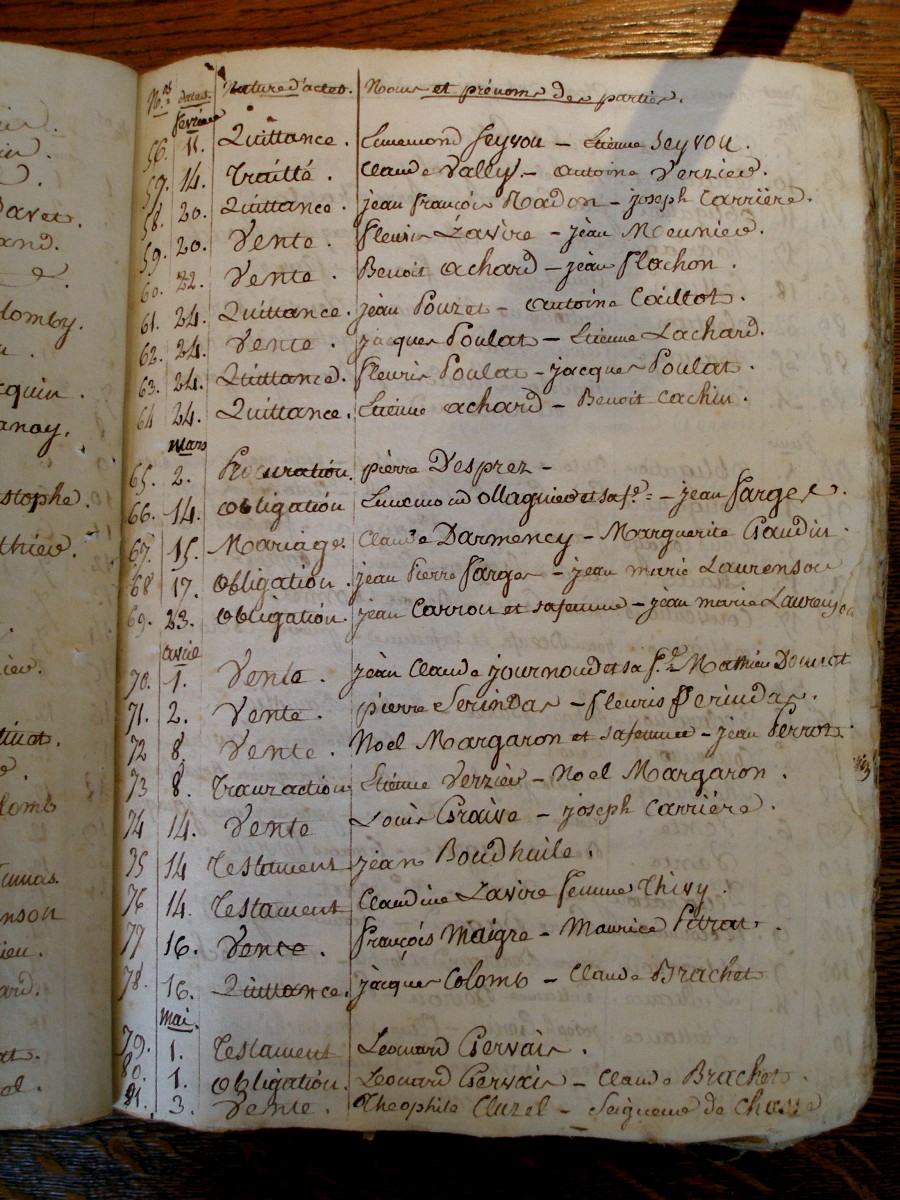 avet.
and.
lomby.
cquin.
anay.
stophe.
thieu.
lomb
nson
ieu.
ard.
N.os dates. Nature d'actes. Noms et prénoms des parties.
février
56. 11. Quittance. Ennemond Seyvou – Etienne Seyvou.
57. 14. Traitté. Claude Vally – antoine Verzieu.
58. 20. Quittance. jean françois Nadon – joseph Carrière.
59. 20. Vente. fleuris Zavire – jean Meunieu.
60. 22. Vente. Benoit achard – jean flachon.
61. 24. Quittance. jean Pouzet – antoine Caillot.
62. 24. Vente. jacques Poulat – Etienne Lachard.
63. 24. Quittance. fleuris Poulat – jacques Poulat.
64 24. Quittance. Etienne achard – Benoit Cachin.
Mars
65. 2. Procuration. pierre Desprez –
66. 14. obligation Ennemond ollagnieu et sa f.e – jean farges.
67. 15. Mariage. Claude Darmency – Marguerite Gaudin.
68 17. obligation. jean Pierre farges – jean marie Laurenson
69. 23. obligation. jean Carron et sa femme – jean marie Laurenson
avril
70. 1. Vente. jean Claude journoud et sa f.e Mathieu
71. 2. Vente. pierre Serindas – fleuris Serindas.
72 8. Vente. Noel Margaron et sa femme – jean Perrot.
73 8. Transaction Etienne Verzieu – Noel Margaron.
74 14. Vente Louis Graise – joseph Carrière.
75 14 Testament jean Boudhuile.
76 14. Testament Claudine Zavire femme Thivy.
77 16. Vente. françois Maigre – Maurice Pitrat.
78. 16. Quittance. jacques Colomb – Claude Brachet
Mai.
79. 1. Testament Leonard Gervais.
80. 1. obligation. Leonard Gervais – Claude Brachet.
81. 3. Vente. Theophile Cluzel – Seigneur de Chasse